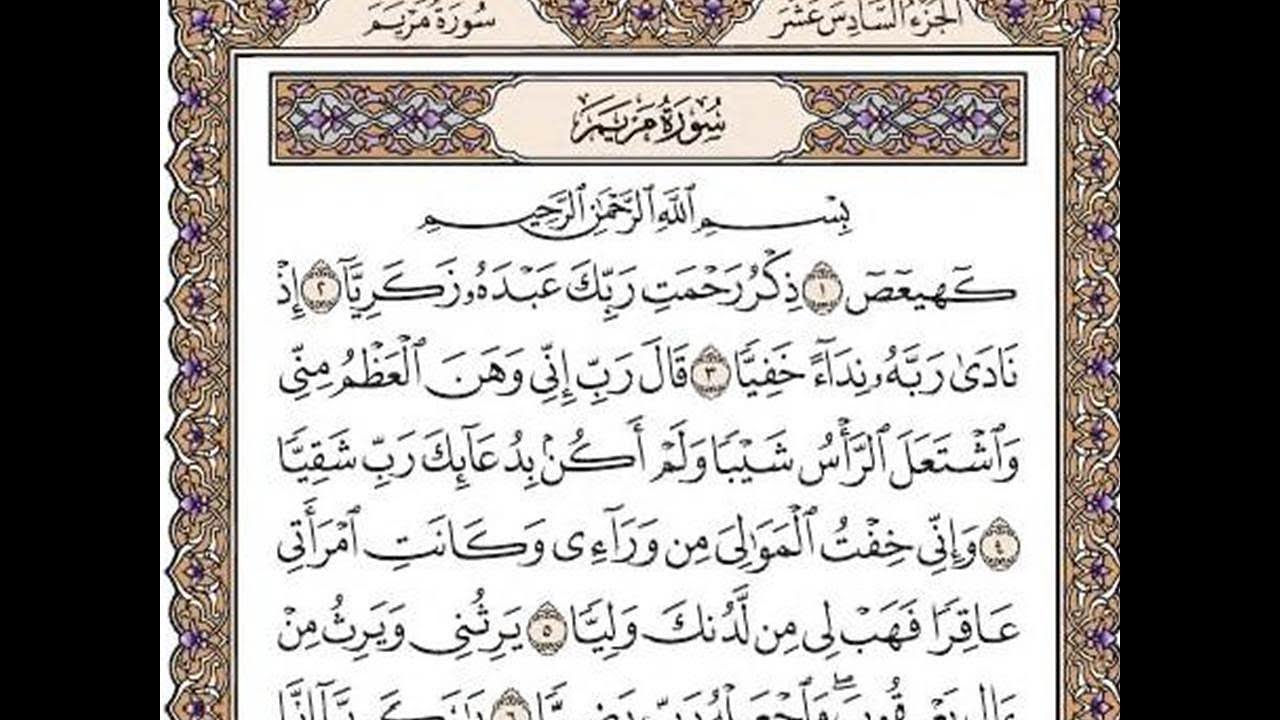 الجزء السادس عشر سورة مريم
سُورَةُ مَرْيَمَ
بِسْمِ ٱللَّهِ ٱلرَّحْمَٰنِ ٱلرَّحِيمِ
كٓهيعٓصٓ ١ ذِكْرُ رَحْمَتِ رَبِّكَ عَبْدَهُۥ زَكَرِيَّآ ٢ إِذْ
نَادَىٰ رَبَّهُۥ نِدَآءً خَفِيًّا ٣ قَالَ رَبِّ إِنِّى وَهَنَ ٱلْعَظْمُ مِنِّى
وَٱشْتَعَلَ ٱلرَّأْسُ شَيْبًا وَلَمْ أَكُنۢ بِدُعَآئِكَ رَبِّ شَقِيًّا
٤ وَإِنِّى خِفْتُ ٱلْمَوَٰلِىَ مِن وَرَآءِى وَكَانَتِ ٱمْرَأَتِى
عَاقِرًا فَهَبْ لِى مِن لَّدُنكَ وَلِيًّا ٥ يَرِثُنِى وَيَرِثُ مِنْ
ءَالِ يَعْقُوبَ ۖ وَٱجْعَلْهُ رَبِّ رَضِيًّا ٦ يَٰزَكَرِيَّآ إِنَّا